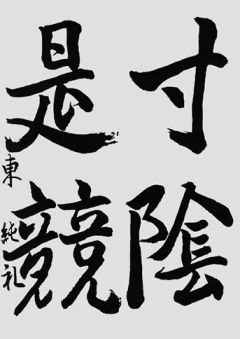 寸陰
是競
東 純礼